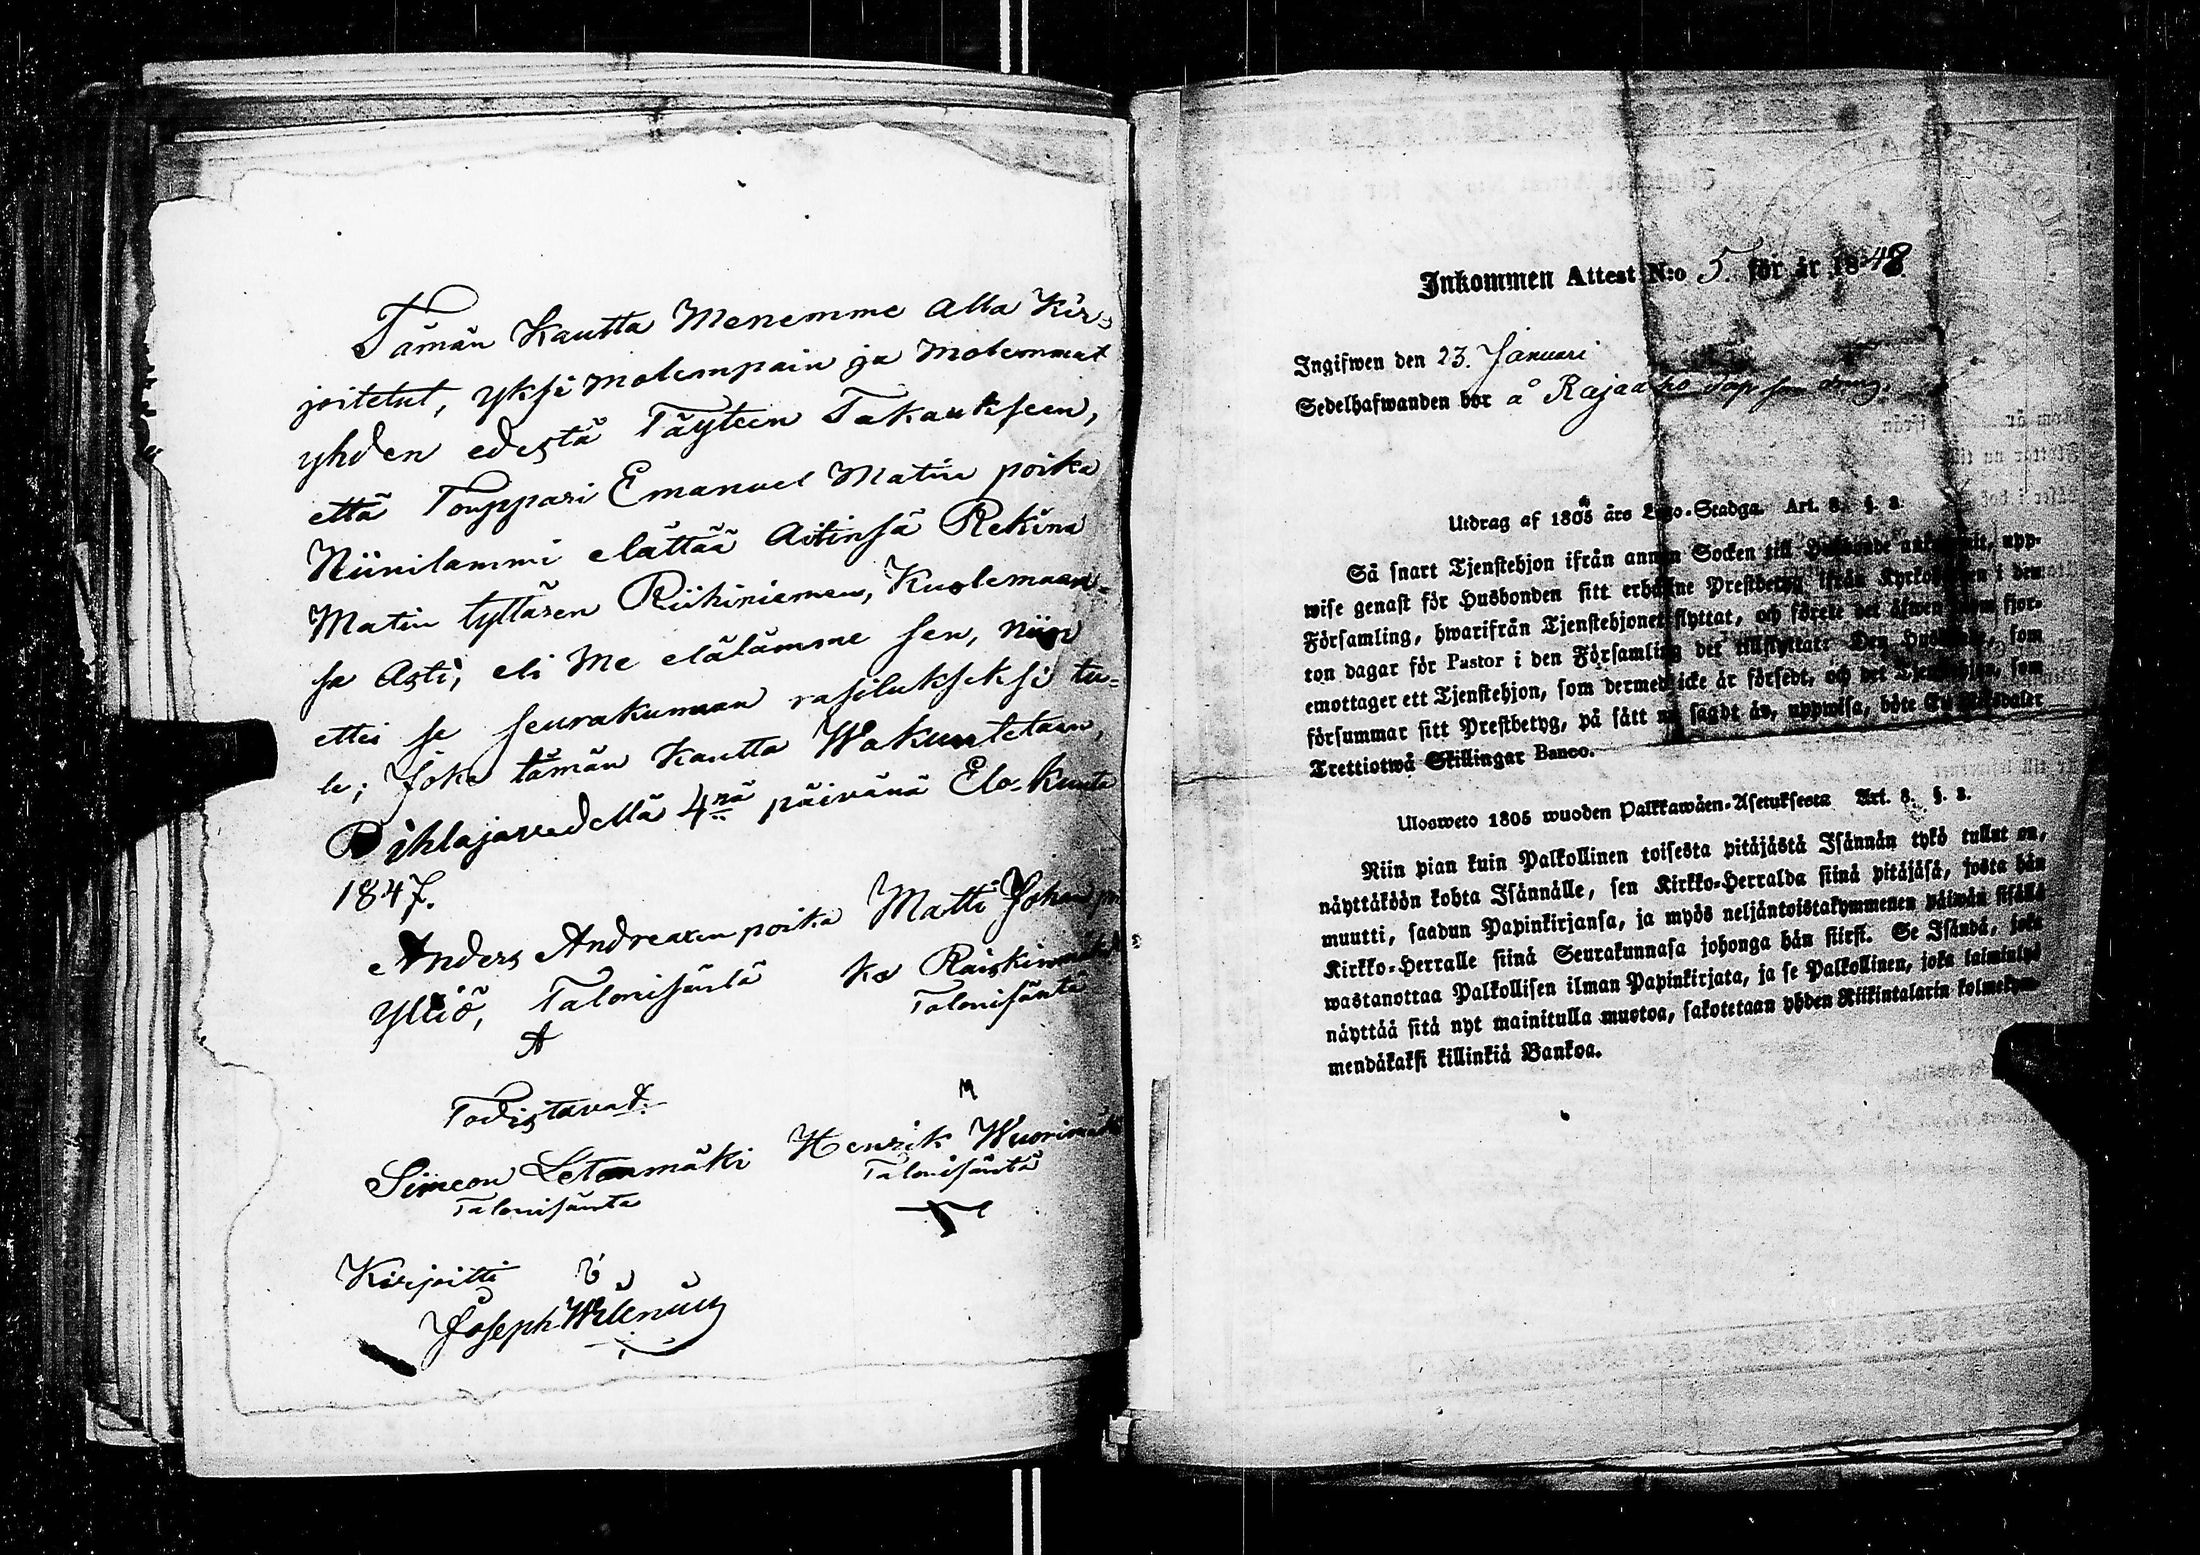 Tämän Kautta Menemme alla Kir=
joitetut, yksi molempain ja Molemmat
yhden edestä Täyteen Takaukseen,
että Touppari Emanuel Matin poika
Niinilammi elättää Aitinsä Rekina
Matin tyttären Riikiniemen, Kuolemaan=
sa Asti, eli Me elälämme sen, niin
ettei se seurakunnan rasitukseksi tu=
le; Joka tämän Kautta Wakuutetaan,
Pihlajavedellä 4nä päivänä Elo-Kuuta
1847.
Anders Andreaxen poika Matti Johan poi
Yliö, Talonisäntä ka Raiskinmäki
Talonisäntä
A
M
Todistavat.
Simeon Letonmäki Henrik Wuorimäki
Talonisäntä Talonisäntä
Kirjoitti
Joseph Wilenius
Inkommen Attest N:o 5. för år 1848
Ingifwen den 23. Januari
Sedelhafwanden bor å Rajaaho
Utdrag af 1805 års Lego-Stadga Art. 8. §. 2.
Så snart Tjenstehjon ifrån annan Socken till Husbonde ankommit, upp-
wise genast för Husbonden sitt erhållne Prestbetyg ifrån Kyrkoherden i den
Församling, hwarifrån Tjenstehjonet flyttat, och förete det äfwen inom fjor-
ton dagar för Pastor i den Församling det tillflyttat. Den Husbonde, som
emottager ett Tjenstehjon, som dermed icke är försedt, och det Tjenstehjon, som
försummar sitt Prestbetyg, på sätt nu sagdt är, uppwisa, böte En Riksdaler
Trettiotwå Skillingar Banco.
Ulosweto 1805 wuoden Palkkawäen-Asetuksesta Art. 8. §. 2.
Niin pian kuin Palkollinen toisesta pitäjästä Isännän tykö tullut on,
näyttäköön kohta Isännälle, sen Kirkko-Herralda siinä pitäjäsä, josta hän
muutti, saadun Papinkirjansa, ja myös neljäntoistakymmenen päiwän sisällä
Kirkko-Herralle siinä Seurakunnasa johonga hän siirsi. Se Isändä, joka
wastanottaa Palkollisen ilman Papinkirjata, ja se Palkollinen, joka laiminlyö
näyttää sitä nyt mainitulla muotoa, sakotetaan yhden Riikintalarin kolmekym-
mendäkaksi killinkiä Bankoa.